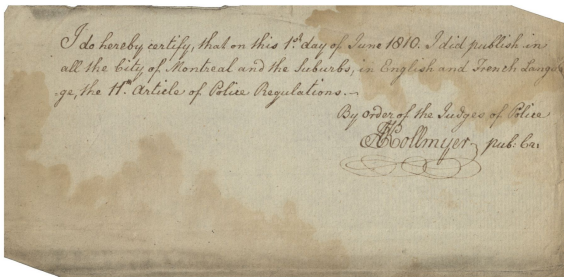 I do hereby certify, that on this 1st day of June 1810. I did publish in
all the City of Montreal and the Suburbs, in English and French Langua
ge, the 11th Article of Police Regulations.
By order of the Judges of Police
Kollmyer pub: Cr: